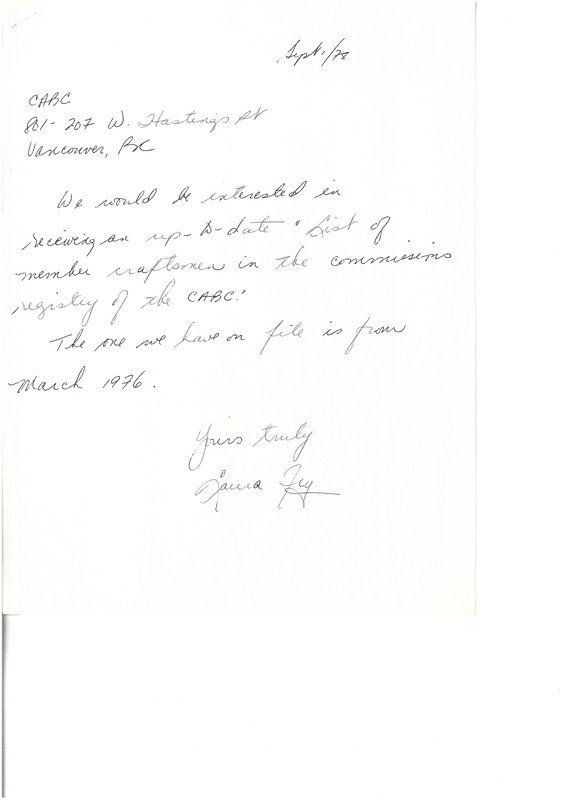 Sept 1/78
CABC
801-207 W. Hastings St
Vancouver, BC
We would be interested in
receiving an up-to-date "List of
member craftsmen in the commissions
registry of the CABC."
The one we have on file is from
March 1976.
Yours truly
Laura Fry